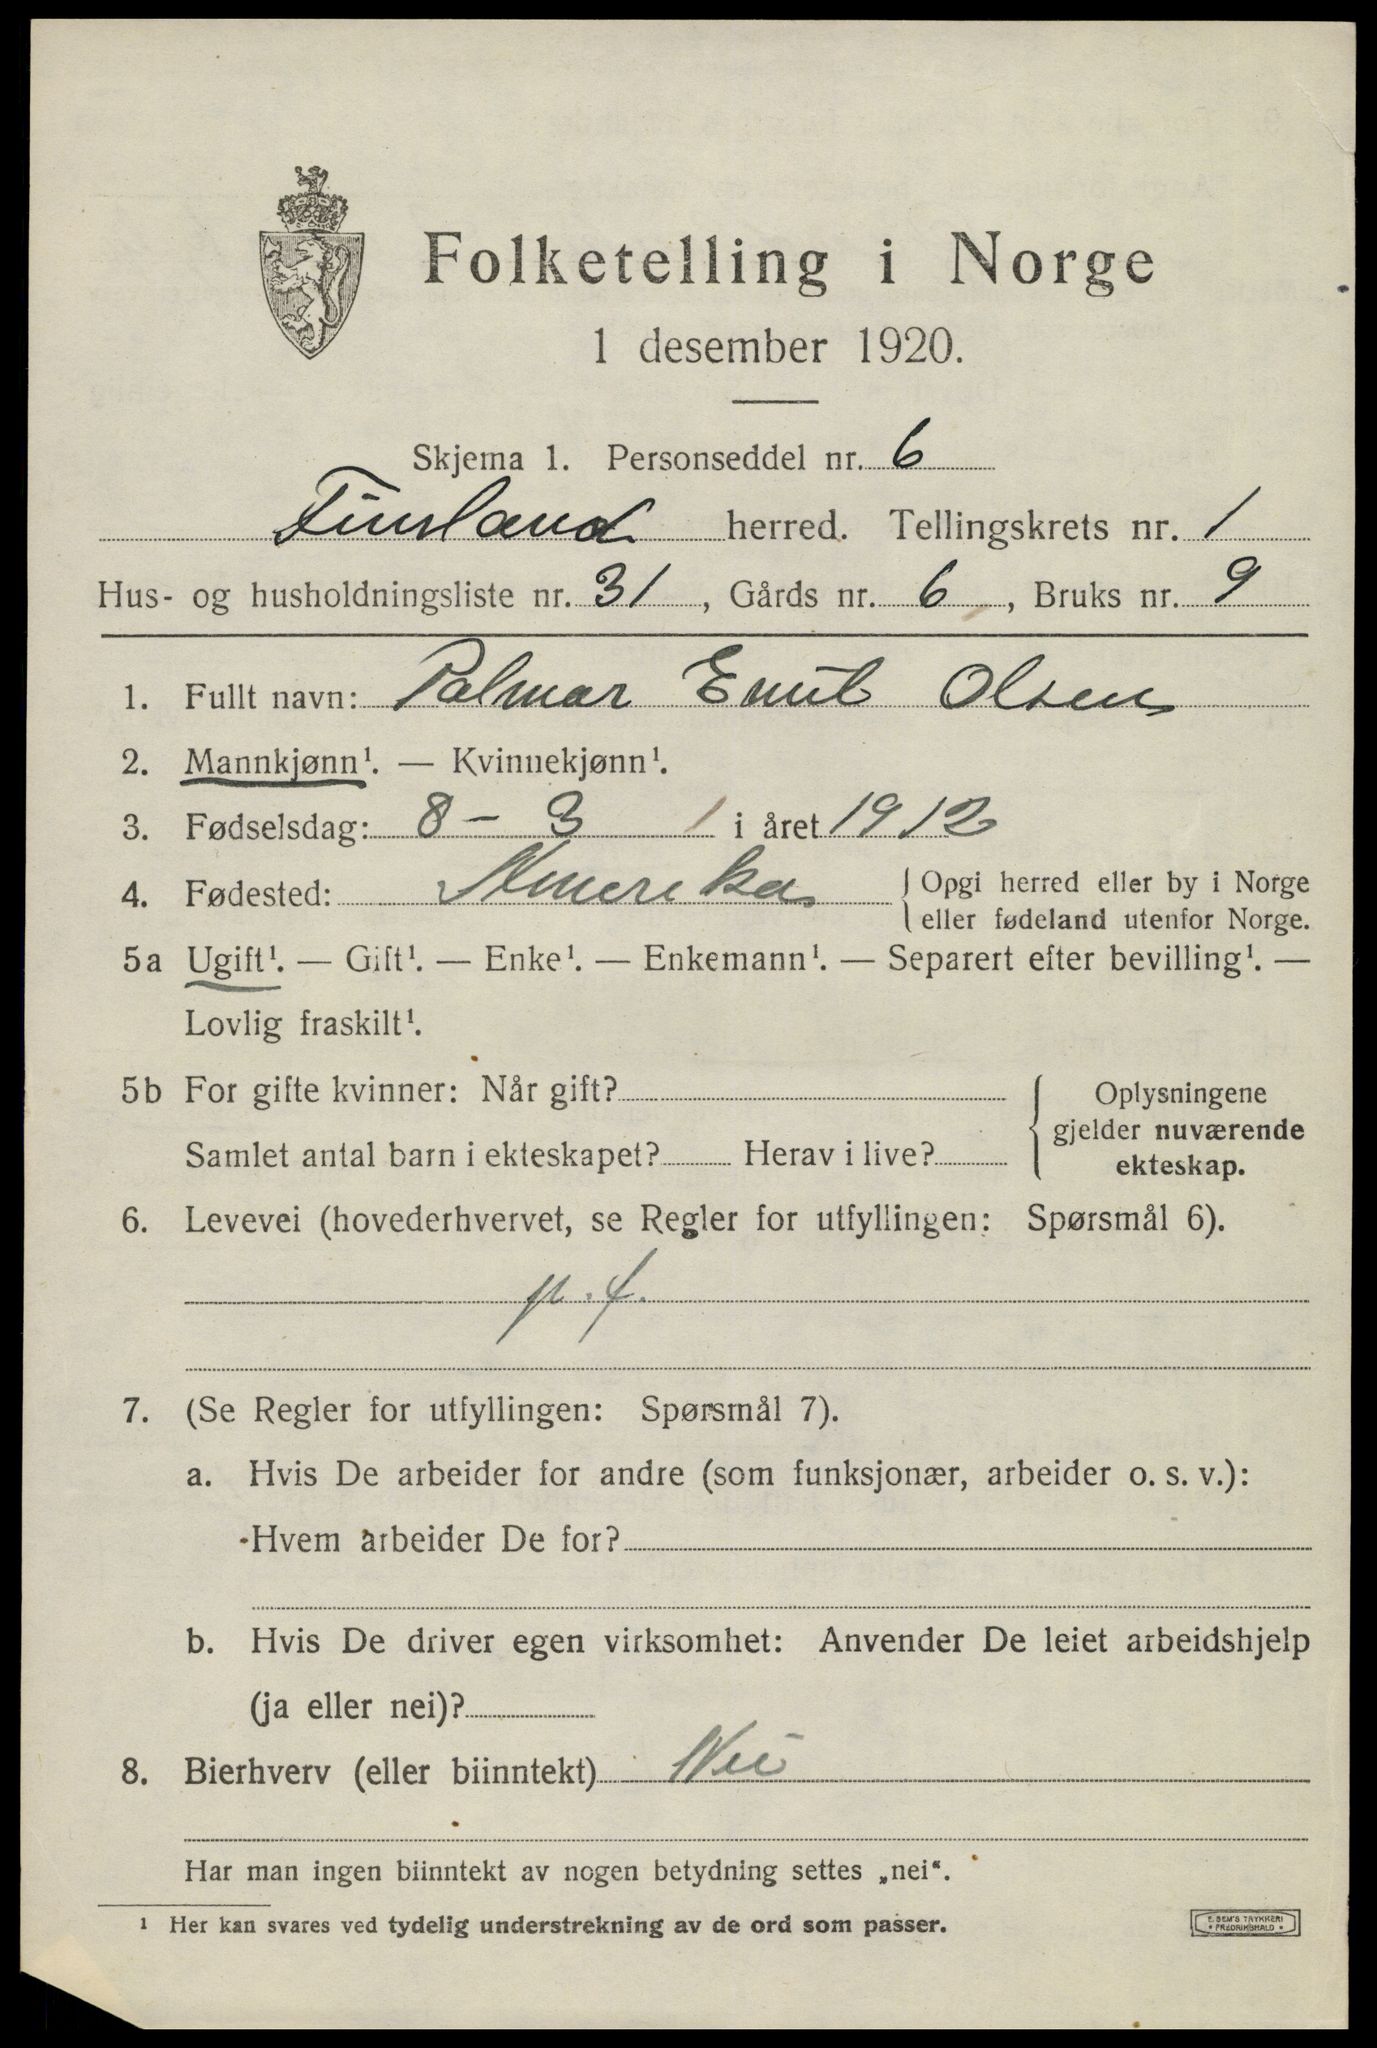 Folketelling i Norge
1 desember 1920.
Skjema 1. Personseddel nr. 6
Finsland herred. Tellingskrets nr. 1
Hus- og husholdningsliste nr. 31, Gårds nr. 6, Bruks nr. 9
1. Fullt navn: Palmar Emil Olsen
2. Mannkjønn¹. — Kvinnekjønn¹.
3. Fødselsdag: 8 – 3 i året 1912
4. Fødested: Amerika { Opgi herred eller by i Norge
eller fødeland utenfor Norge.
5a Ugift¹. — Gift¹. — Enke¹. — Enkemann¹. — Separert efter bevilling¹. —
Lovlig fraskilt¹.
5b For gifte kvinner: Når gift?
Samlet antal barn i ekteskapet? Herav i live?
Oplysningene
gjelder nuværende
ekteskap.
6. Levevei (hovederhvervet, se Regler for utfyllingen: Spørsmål 6).
p. f.
7. (Se Regler for utfyllingen: Spørsmål 7).
a. Hvis De arbeider for andre (som funksjonær, arbeider o. s. v.):
Hvem arbeider De for?
b. Hvis De driver egen virksomhet: Anvender De leiet arbeidshjelp
(ja eller nei)?
8. Bierhverv (eller biinntekt) Nei
Har man ingen biinntekt av nogen betydning settes „nei“.
¹ Her kan svares ved tydelig understrekning av de ord som passer.
E. SEM'S TRYKKERI
* FREDRIKSHALD *